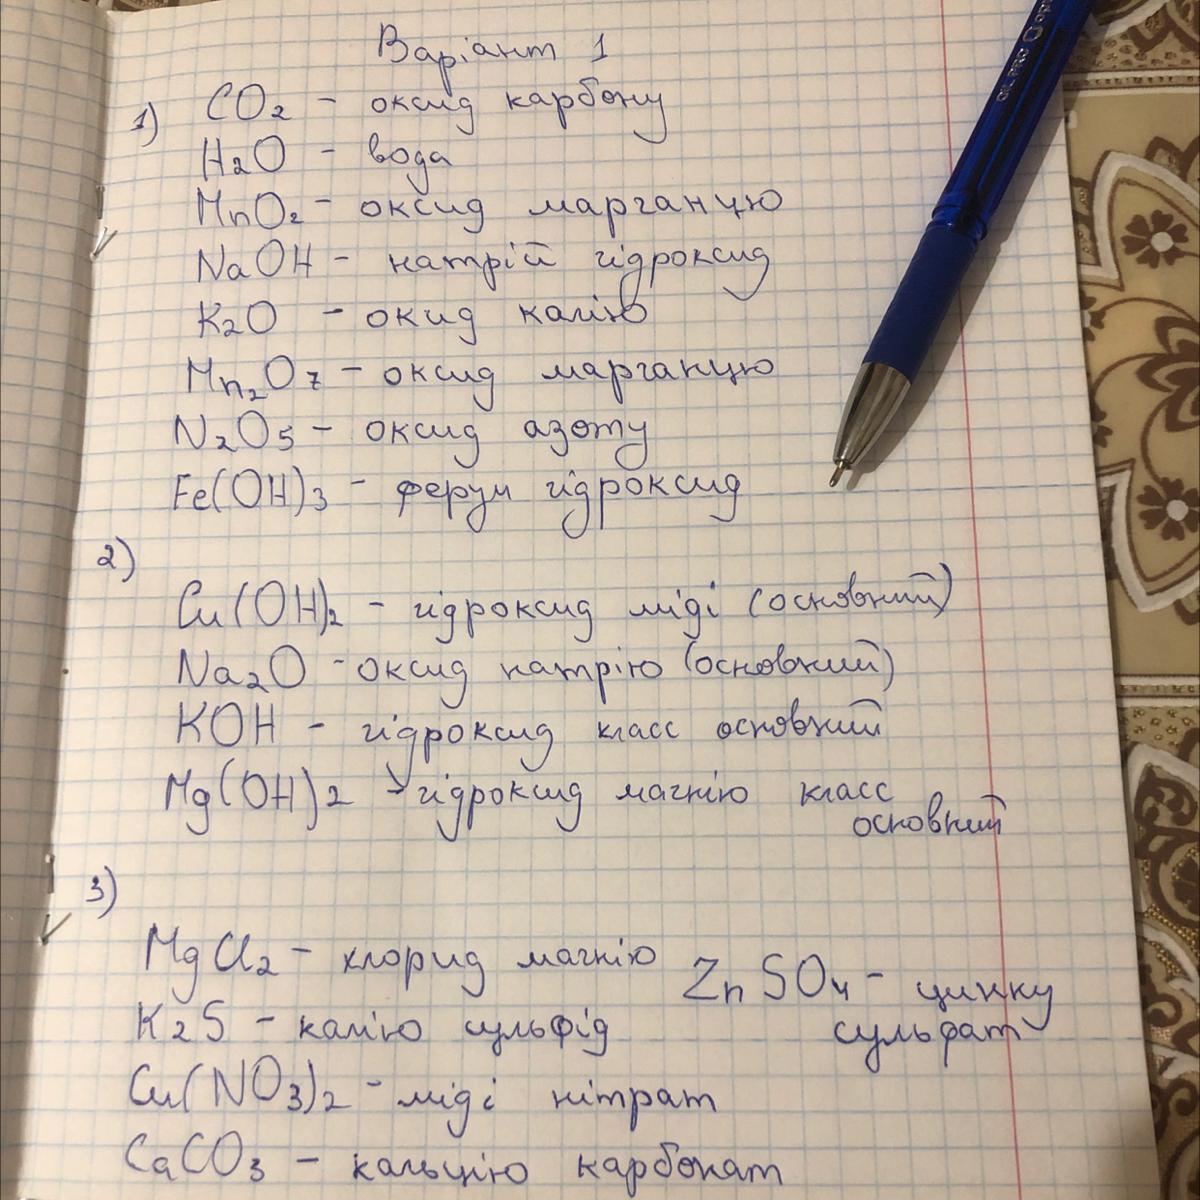 Варіант 1
1) CO2 - оксид карбону
H2O - вода
MnO2 - оксид марганцю
NaOH - натрій гідроксид
K2O - окид калію
Mn2O7 - оксид марганцю
N2O5 - оксид азоту
Fe(OH)3 - ферум гідроксид
2)
Cu(OH)2 - гідроксид міді (основний)
Na2O - оксид натрію (основний)
KOH - гідроксид класс основний
Mg(OH)2 - гідроксид магнію класс
основний
3)
MgCl2 - хлорид магнію
ZnSO4 - цинку
сульфат
K2S - калію сульфід
Cu(NO3)2 - міді нітрат
CaCO3 - кальцію карбонат
OIL PRO